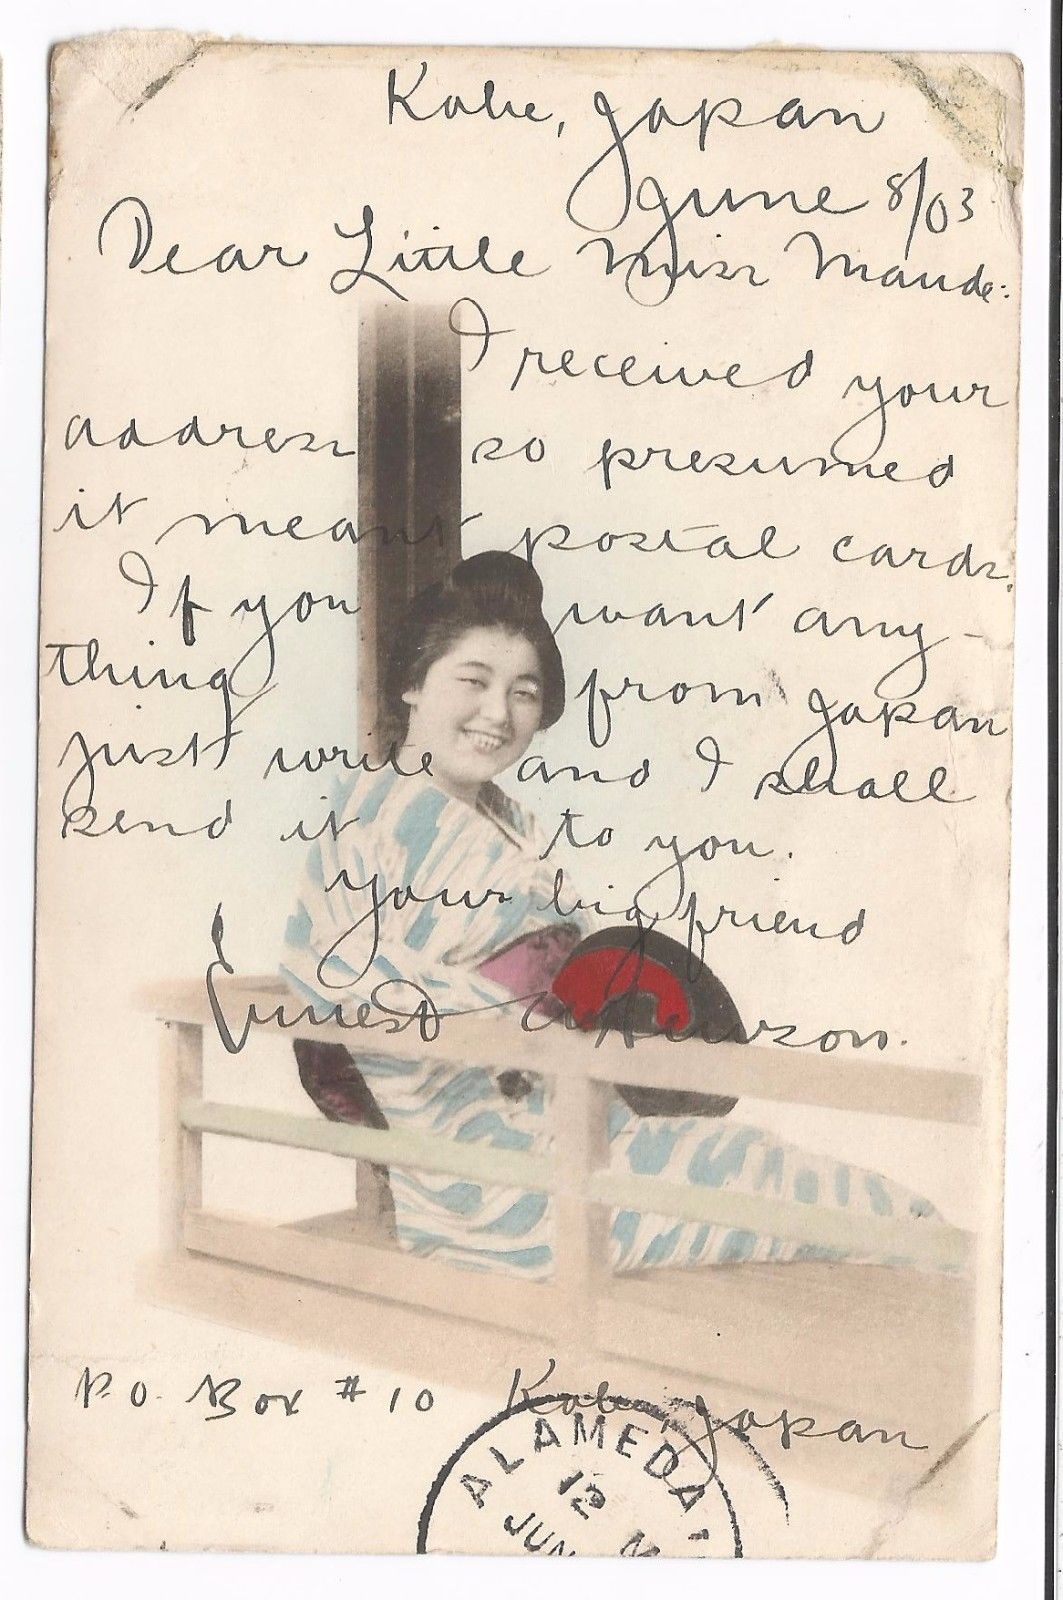 Kobe, Japan
June 8/03
Dear Little Miss Maude:
I received your
address so presumed
it meant postal cards.
If you want any-
thing from Japan
just write and I shall
send it to you.
your big friend
Ernest A
P.O. Box #10 Kobe, Japan
ALAMEDA
12 M
JUN